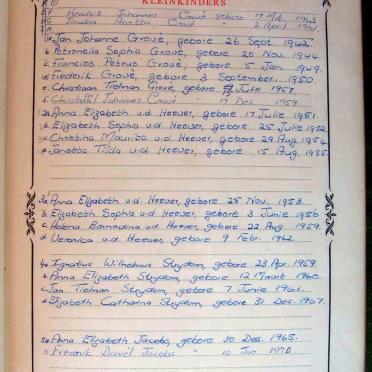 KLEINKINDERS
Hendrik Johannes Grové gebore 17 Feb. 1963
Jacoba Anetta Grové 2 April 1961
1a Jan Johanne Grové, gebore 26 Sept. 1942.
b Petronella Sophia Grové, gebore 20 Nov. 1944.
c Francios Petrus Grové, gebore 5 Jan. 1949.
d Frederik Grové, gebore 3 September. 1950.
e. Christiaan Tielman Grové, gebore 7 Julie 1957.
f. Christoffel Johannes Grové " 17 Des. 1959
2a Anna Elizabeth v.d. Heever, gebore 17 Julie 1951.
b. Elizabeth Sophia v.d. Heever, gebore 25 Julie 1952.
c. Christina Mauritz v.d. Heever, gebore 29 Aug 1954.
Janetta Tilda v.d. Heever, gebore 15 Aug 1955.
3a Anna Elizabeth v.d. Heever, gebore 25 Nov. 1953.
b. Elizabeth Sophia v.d. Heever, gebore 3 Junie 1956
c. Helena Barnadina v.d. Heever, gebore 22 Aug. 1959.
d. Veronica v.d. Heever, gebore 9 Febr. 1962.
4a. Ignatius Wilhelmus Strydom, gebore 23 Apr. 1959.
b. Anna Elizabeth Strydom, gebore 12 Maart 1960.
c. Jan Tielman Strydom, gebore 7 Junie 1961.
d Elizabeth Catharina Strydom, gebore 31 Des. 1967.
5a. Anna Elizabeth Jacobs, gebore 30 Des. 1965.
b Frederik Daniel Jacobs " 10 Jun 1970